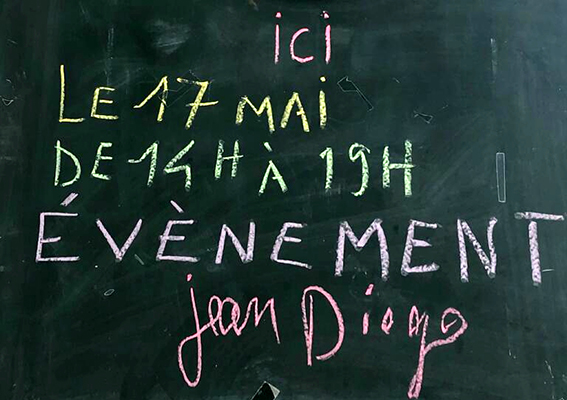 ici
LE 17 MAI
DE 14H À 19H
ÉVÈNEMENT
jean Diogo